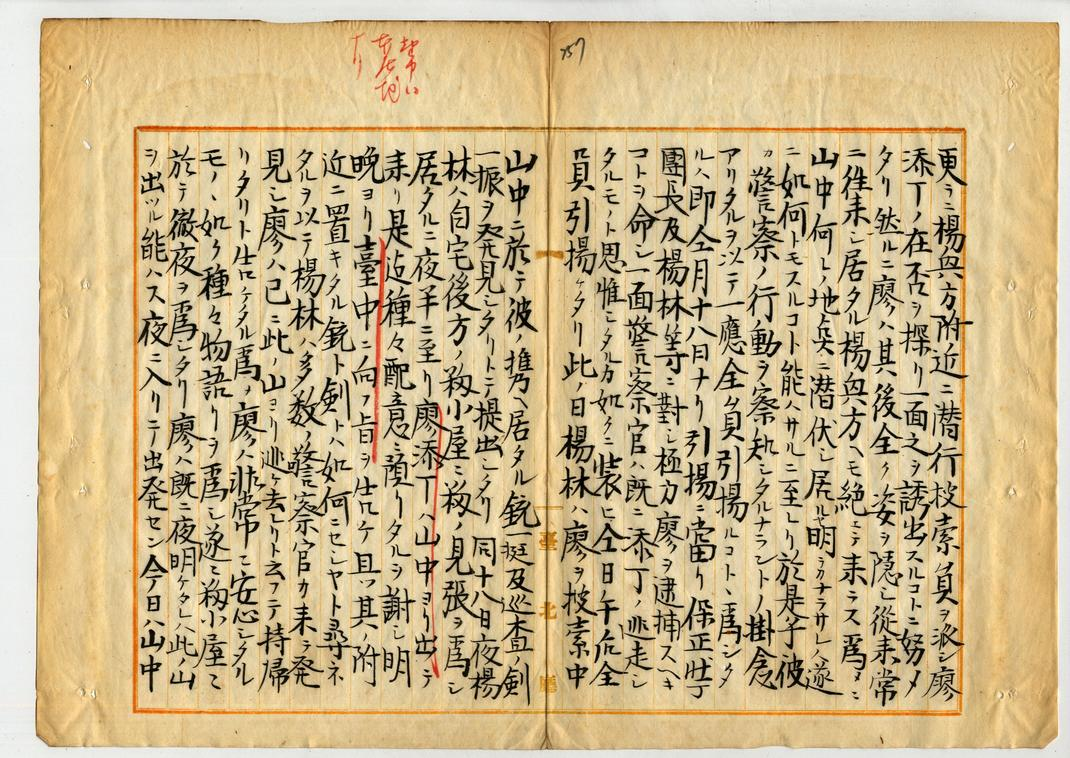 757
更ラニ楊與方附近ニ潜行捜索員ヲ派シ廖
添丁ノ在否ヲ探リ一面之ヲ誘出スルコトニ努メ
タリ然ルニ廖ハ其後全ク姿ヲ隠シ従来常
ニ往来シ居タル楊與方ヘモ絶ニテ来ラス為メニ
山中何レノ地点ニ潜伏シ居ルヤ明ラカナラサレハ遂
ニ如何トモスルコト能ハサルニ至レリ於是乎彼
カ警察ノ行動ヲ察知シタルナラントノ掛念
アリタルヲ以テ一應全員引揚ルコトヽ為シタ
ルハ即仝月十八日ナリ引揚ニ當リ保正壮丁
團長及楊林等ニ對シ極力廖ヲ逮捕スヘキ
コトヲ命シ一面警察官ハ既ニ添丁ノ逃走シ
タルモノト思惟シタルカ如クニ装ヒ仝日午后全
員引揚ケタリ此ノ日楊林ハ廖ヲ捜索中
臺北廳
山中ニ於テ彼ノ携ヘ居タル銃一挺及巡査ノ剣
一振ヲ発見シタリトテ提出シタリ同十八日夜楊
林ハ自宅後方ノ籾小屋ニ籾ノ見張ヲ為シ
居タルニ夜半ニ至リ廖添丁ハ山中ヨリ出テ
来リ是迠種々配意ニ預リタルヲ謝シ明
晩ヨリ臺中ニ向フ旨ヲ告ケ且ツ其ノ附
近ニ置キタル銃ト剣トハ如何ニセシヤト尋ネ
タルヲ以テ楊林ハ多数ノ警察官カ来リ発
見シ廖ハ已ニ此ノ山ヨリ逃ケ去レリト云フテ持帰
リタリト告ケタル為メ廖ハ非常ニ安心シタル
モノヽ如ク種々物語リヲ為シ遂ニ籾小屋ニ
於テ徹夜ヲ為シタリ廖ハ既ニ夜明ケタレハ此ノ山
ヲ出ツル能ハス夜ニ入リテ出発セン今日ハ山中